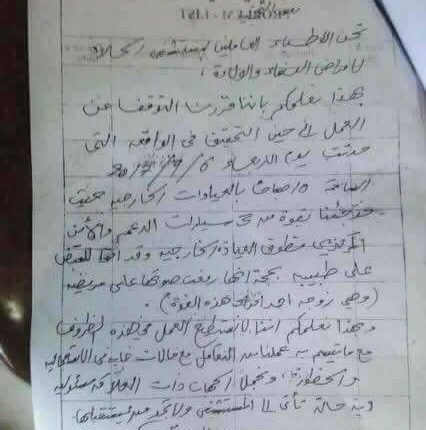 نحن الأطباء العاملين بمستشفى الجلاء
لأمراض النساء والولادة ،
بهذا نعلمكم بأننا قررنا التوقف عن
العمل إلى حين التحقيق في الواقعة التي
حدثت يوم الاربعاء 2017/9/6
الساعة 10 صباحا بالعيادات الخارجية حيث
فوجئنا بقوة من سيارات الدعم والأمن
المركزي تطوق العيادة الخارجية وقد
على طبيبه بحجة انها رفعت صوتها على مريضه
(وهي زوجه احد افراد هذه القوة) .
وبهذا نعلمكم اننا لا نستطيع العمل في هذه الظروف
مع ما يتسم به عملنا من التعامل مع حالات غايه في الاستعجاليه
والخطورة ، ونحمل الجهات ذات العلاقة مسئولية
اية حالة تأتي الى المستشفى ولا تجد من يستقبلها .